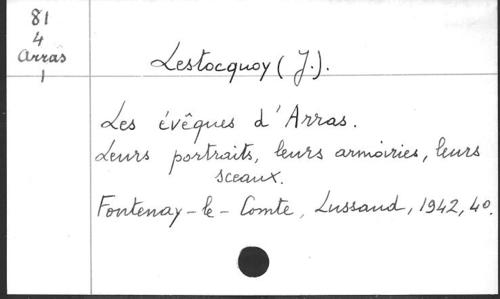 81
4
Arras
1
Lestocquoy (J.).
Les évêques d'Arras.
Leurs portraits, leurs armoiries, leurs
sceaux.
Fontenay-le-Comte, Lussaud, 1942, 4º.